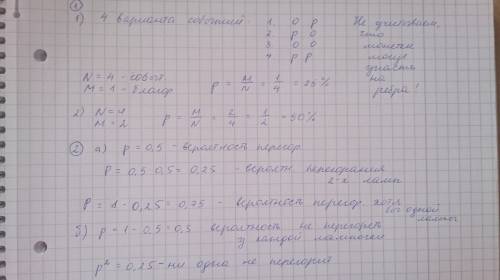 ①
1) 4 варианта событий: 1. О Р Не учитываем,
2 Р О что
3 О О монетки
4 Р Р могут
упасть
N = 4 - событ. на
M = 1 - благопр. P = M/N = 1/4 = 25% ребра!
2) N = 4
M = 2 P = M/N = 2/4 = 1/2 = 50%
② а) p = 0,5 - вероятность перегор.
P = 0,5 · 0,5 = 0,25 - вероятн. перегорания
2-х ламп
P = 1 - 0,25 = 0,75 - вероятность перегор. хотя
бы одной
лампы
б) p = 1 - 0,5 = 0,5 вероятность не перегореть
у каждой лампочки
p² = 0,25 - ни одна не перегорит